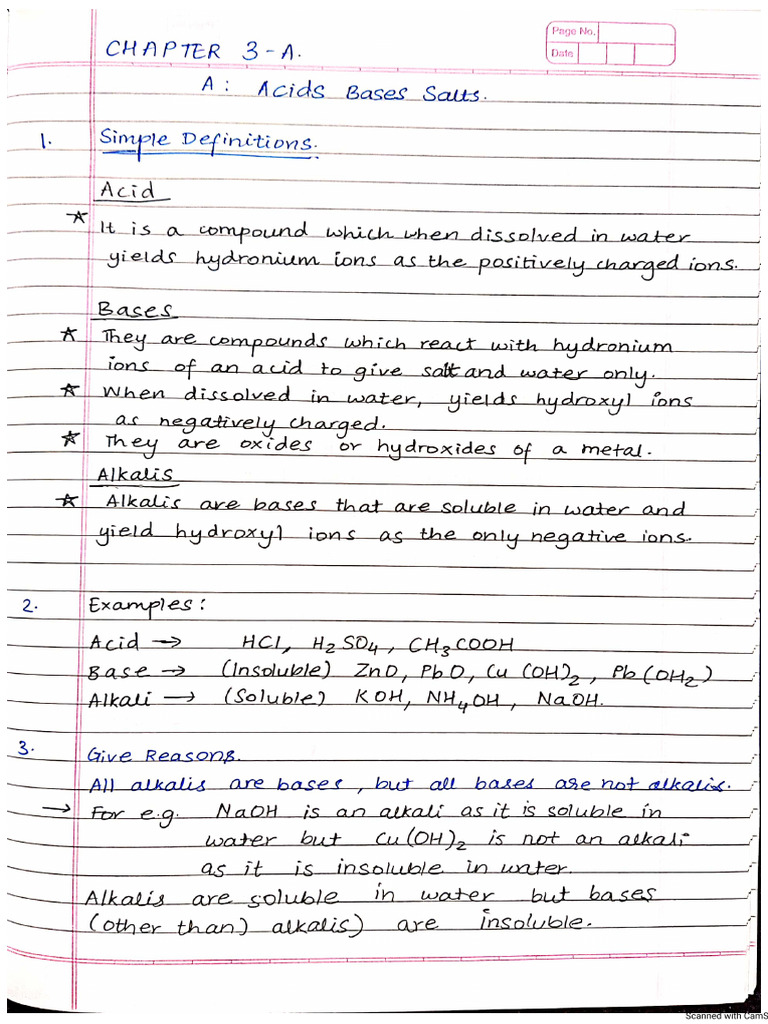 Page No.
Date
CHAPTER 3-A.
A: Acids Bases Salts.
1. Simple Definitions.
Acid
☆ It is a compound which when dissolved in water
yields hydronium ions as the positively charged ions.
Bases
☆ They are compounds which react with hydronium
ions of an acid to give salt and water only.
☆ When dissolved in water, yields hydroxyl ions
as negatively charged.
☆ They are oxides or hydroxides of a metal.
Alkalis
☆ Alkalis are bases that are soluble in water and
yield hydroxyl ions as the only negative ions.
2. Examples:
Acid → HCl, H₂SO₄, CH₃COOH
Base → (Insoluble) ZnO, PbO, Cu(OH)₂, Pb(OH₂)
Alkali → (Soluble) KOH, NH₄OH, NaOH.
3. Give Reasons.
All alkalis are bases, but all bases are not alkalis.
→ For e.g. NaOH is an alkali as it is soluble in
water but Cu(OH)₂ is not an alkali
as it is insoluble in water.
Alkalis are soluble in water but bases
(other than) alkalis) are insoluble.
Scanned with CamS